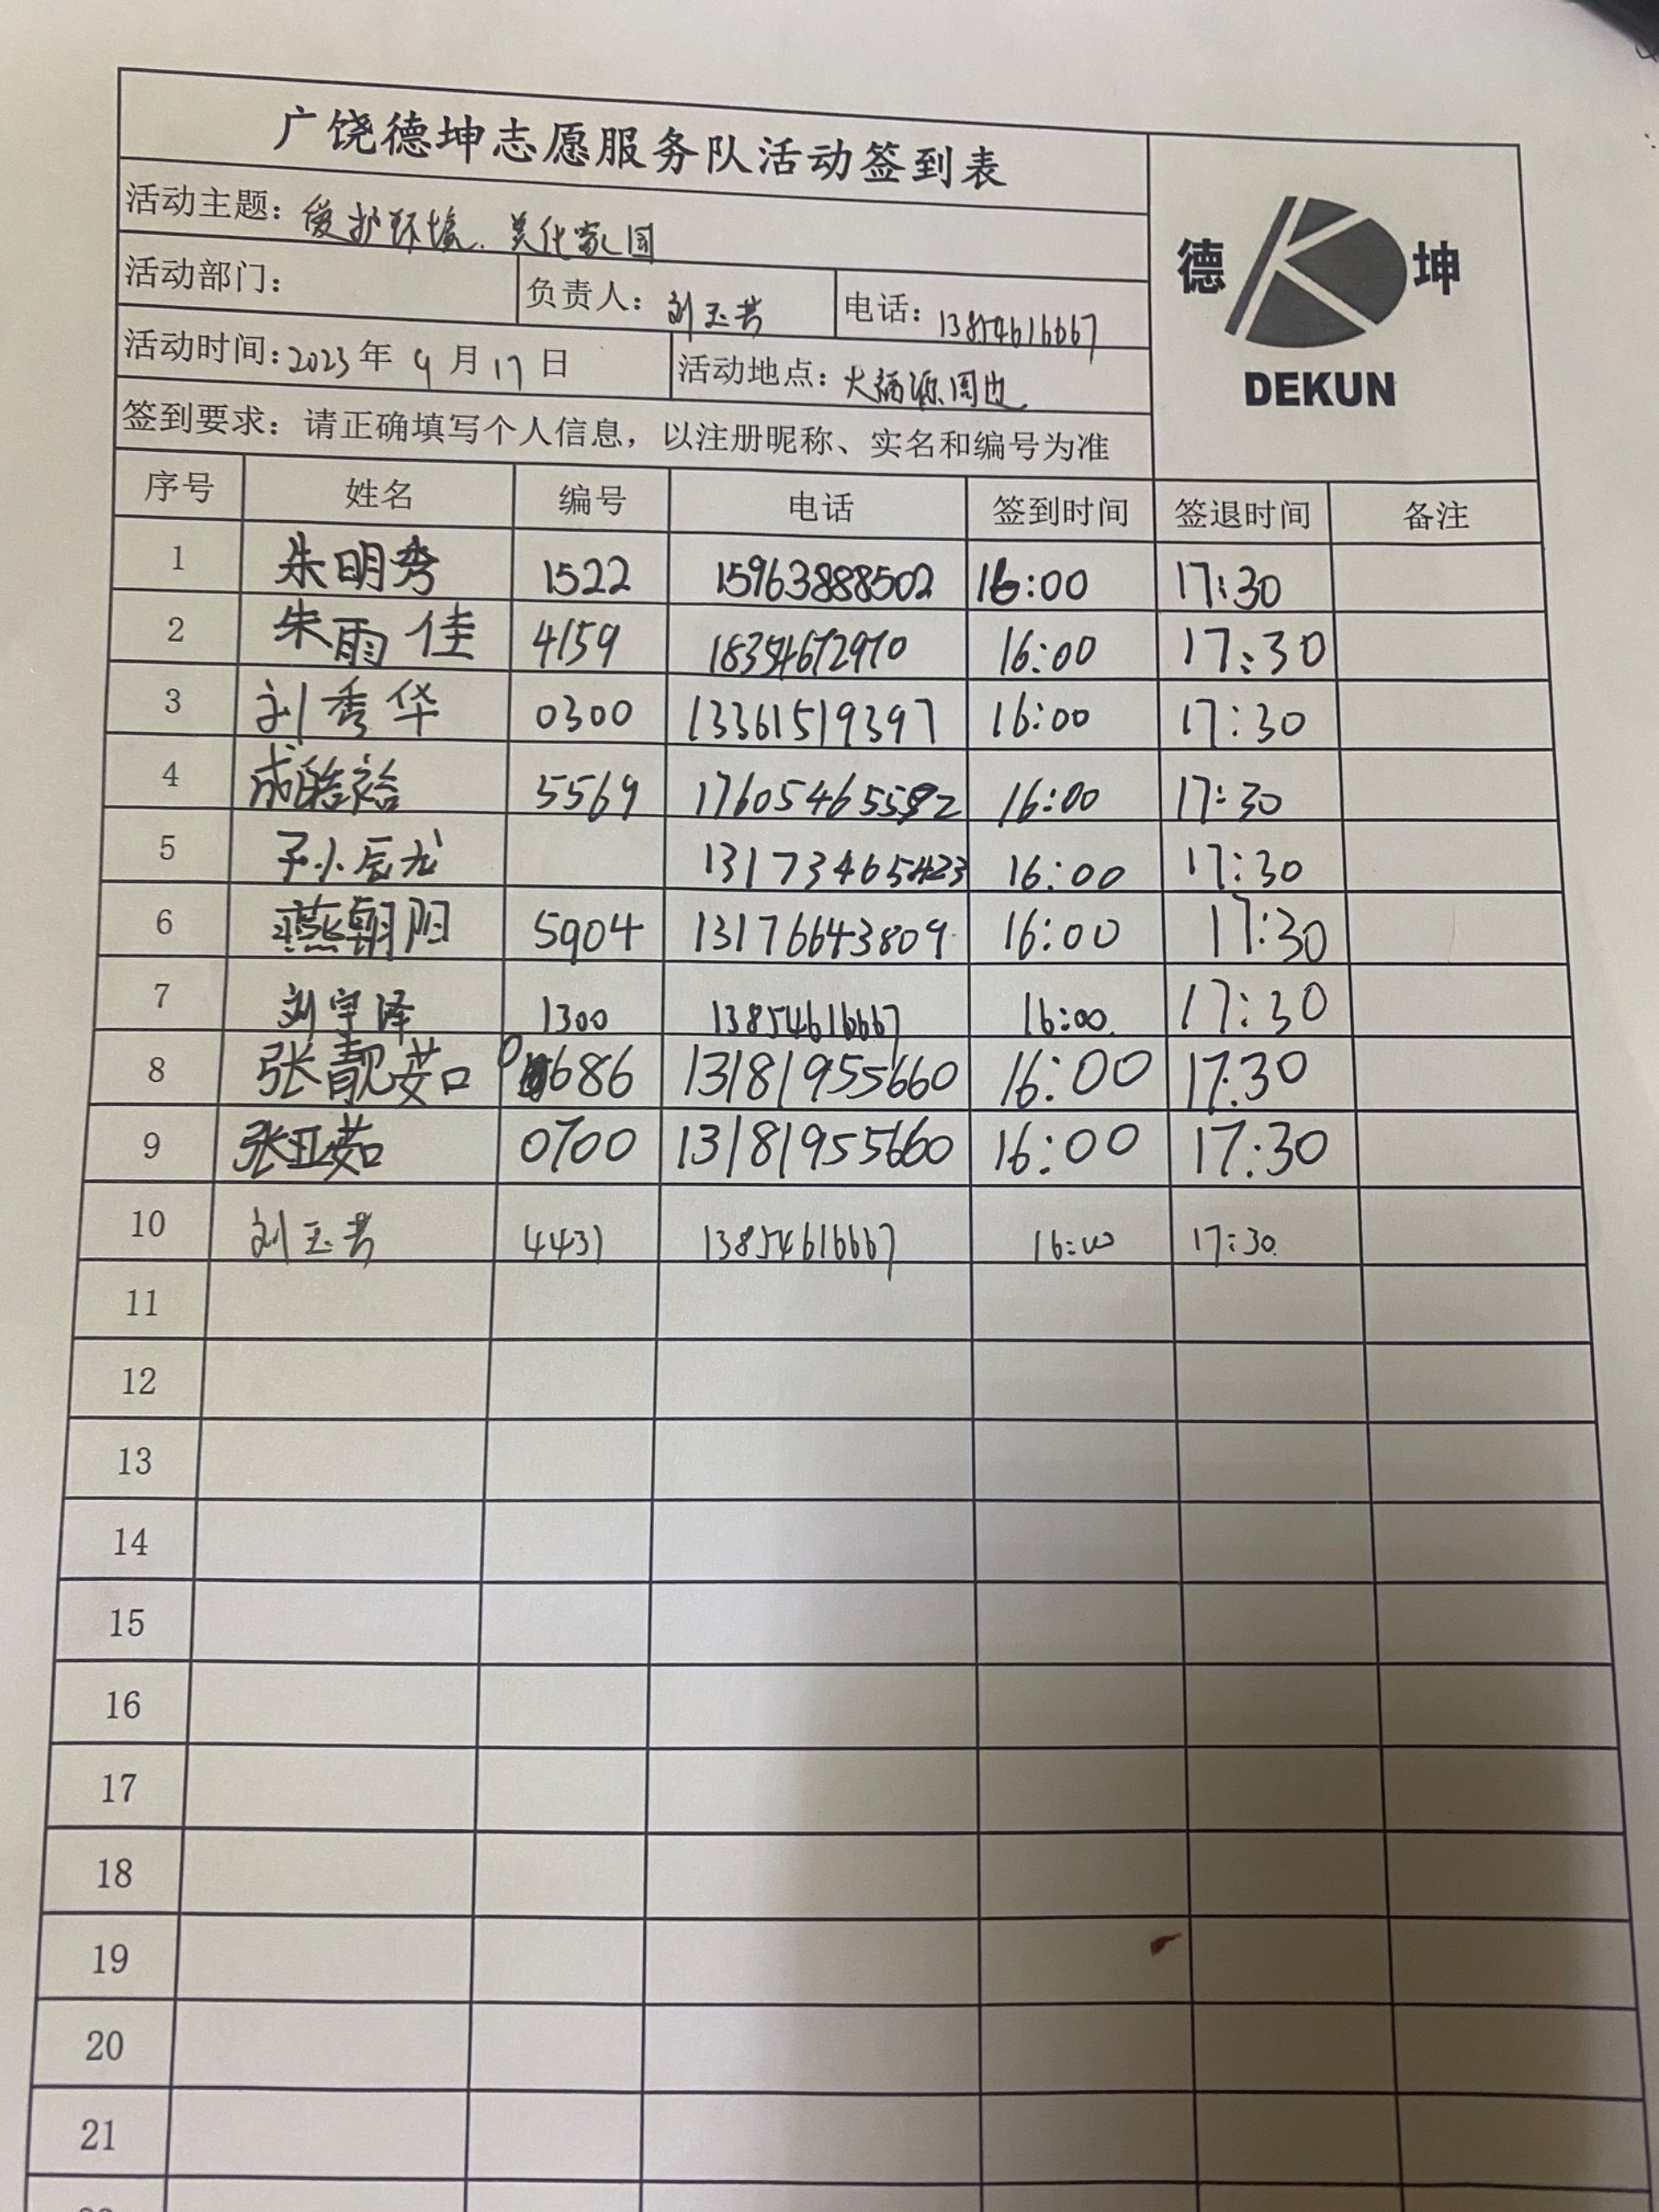 广饶德坤志愿服务队活动签到表
德 坤
DEKUN
活动主题：爱护环境、美化家园
活动部门： 负责人：刘玉芳 电话：13854616667
活动时间：2023年9月17日 活动地点：大福源周边
签到要求：请正确填写个人信息，以注册昵称、实名和编号为准
序号 姓名 编号 电话 签到时间 签退时间 备注
1 朱明秀 1522 15963888502 16:00 17:30
2 朱雨佳 4159 18354672970 16:00 17:30
3 刘秀华 0300 13361519397 16:00 17:30
4 成皓裕 5569 17605465592 16:00 17:30
5 13173465423 16:00 17:30
6 燕朝阳 5904 13176643809 16:00 17:30
7 刘宇泽 1300 13854616667 16:00 17:30
8 张靓茹 0686 13181955660 16:00 17:30
9 张亚茹 0700 13181955660 16:00 17:30
10 刘玉芳 4431 13854616667 16:00 17:30
11
12
13
14
15
16
17
18
19
20
21